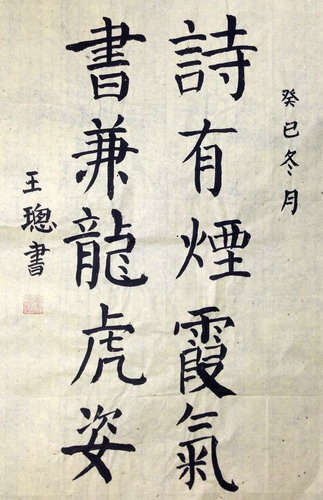 癸巳冬月
詩有煙霞氣
書兼龍虎姿
王璁書